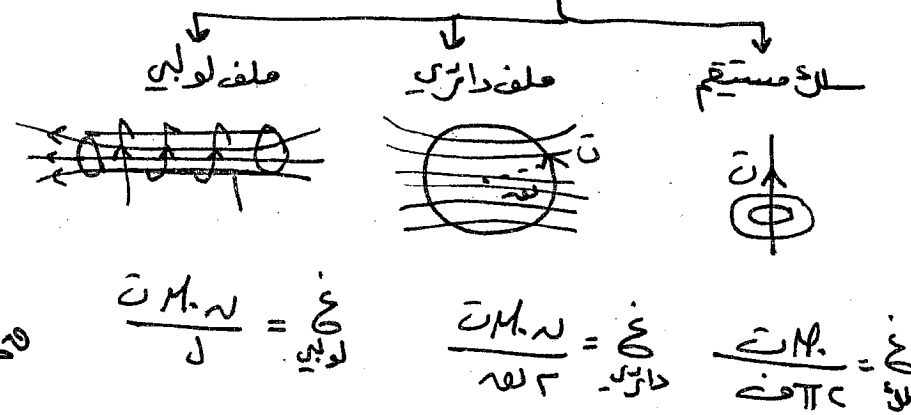 سلك مستقيم
ملف دائري
ملف لولبي
ت
ت
نق
غ سلك = μ.ت / ٢πف
غ دائري = μ.ن ت / ٢نق
غ لولبي = μ.ن ت / ل